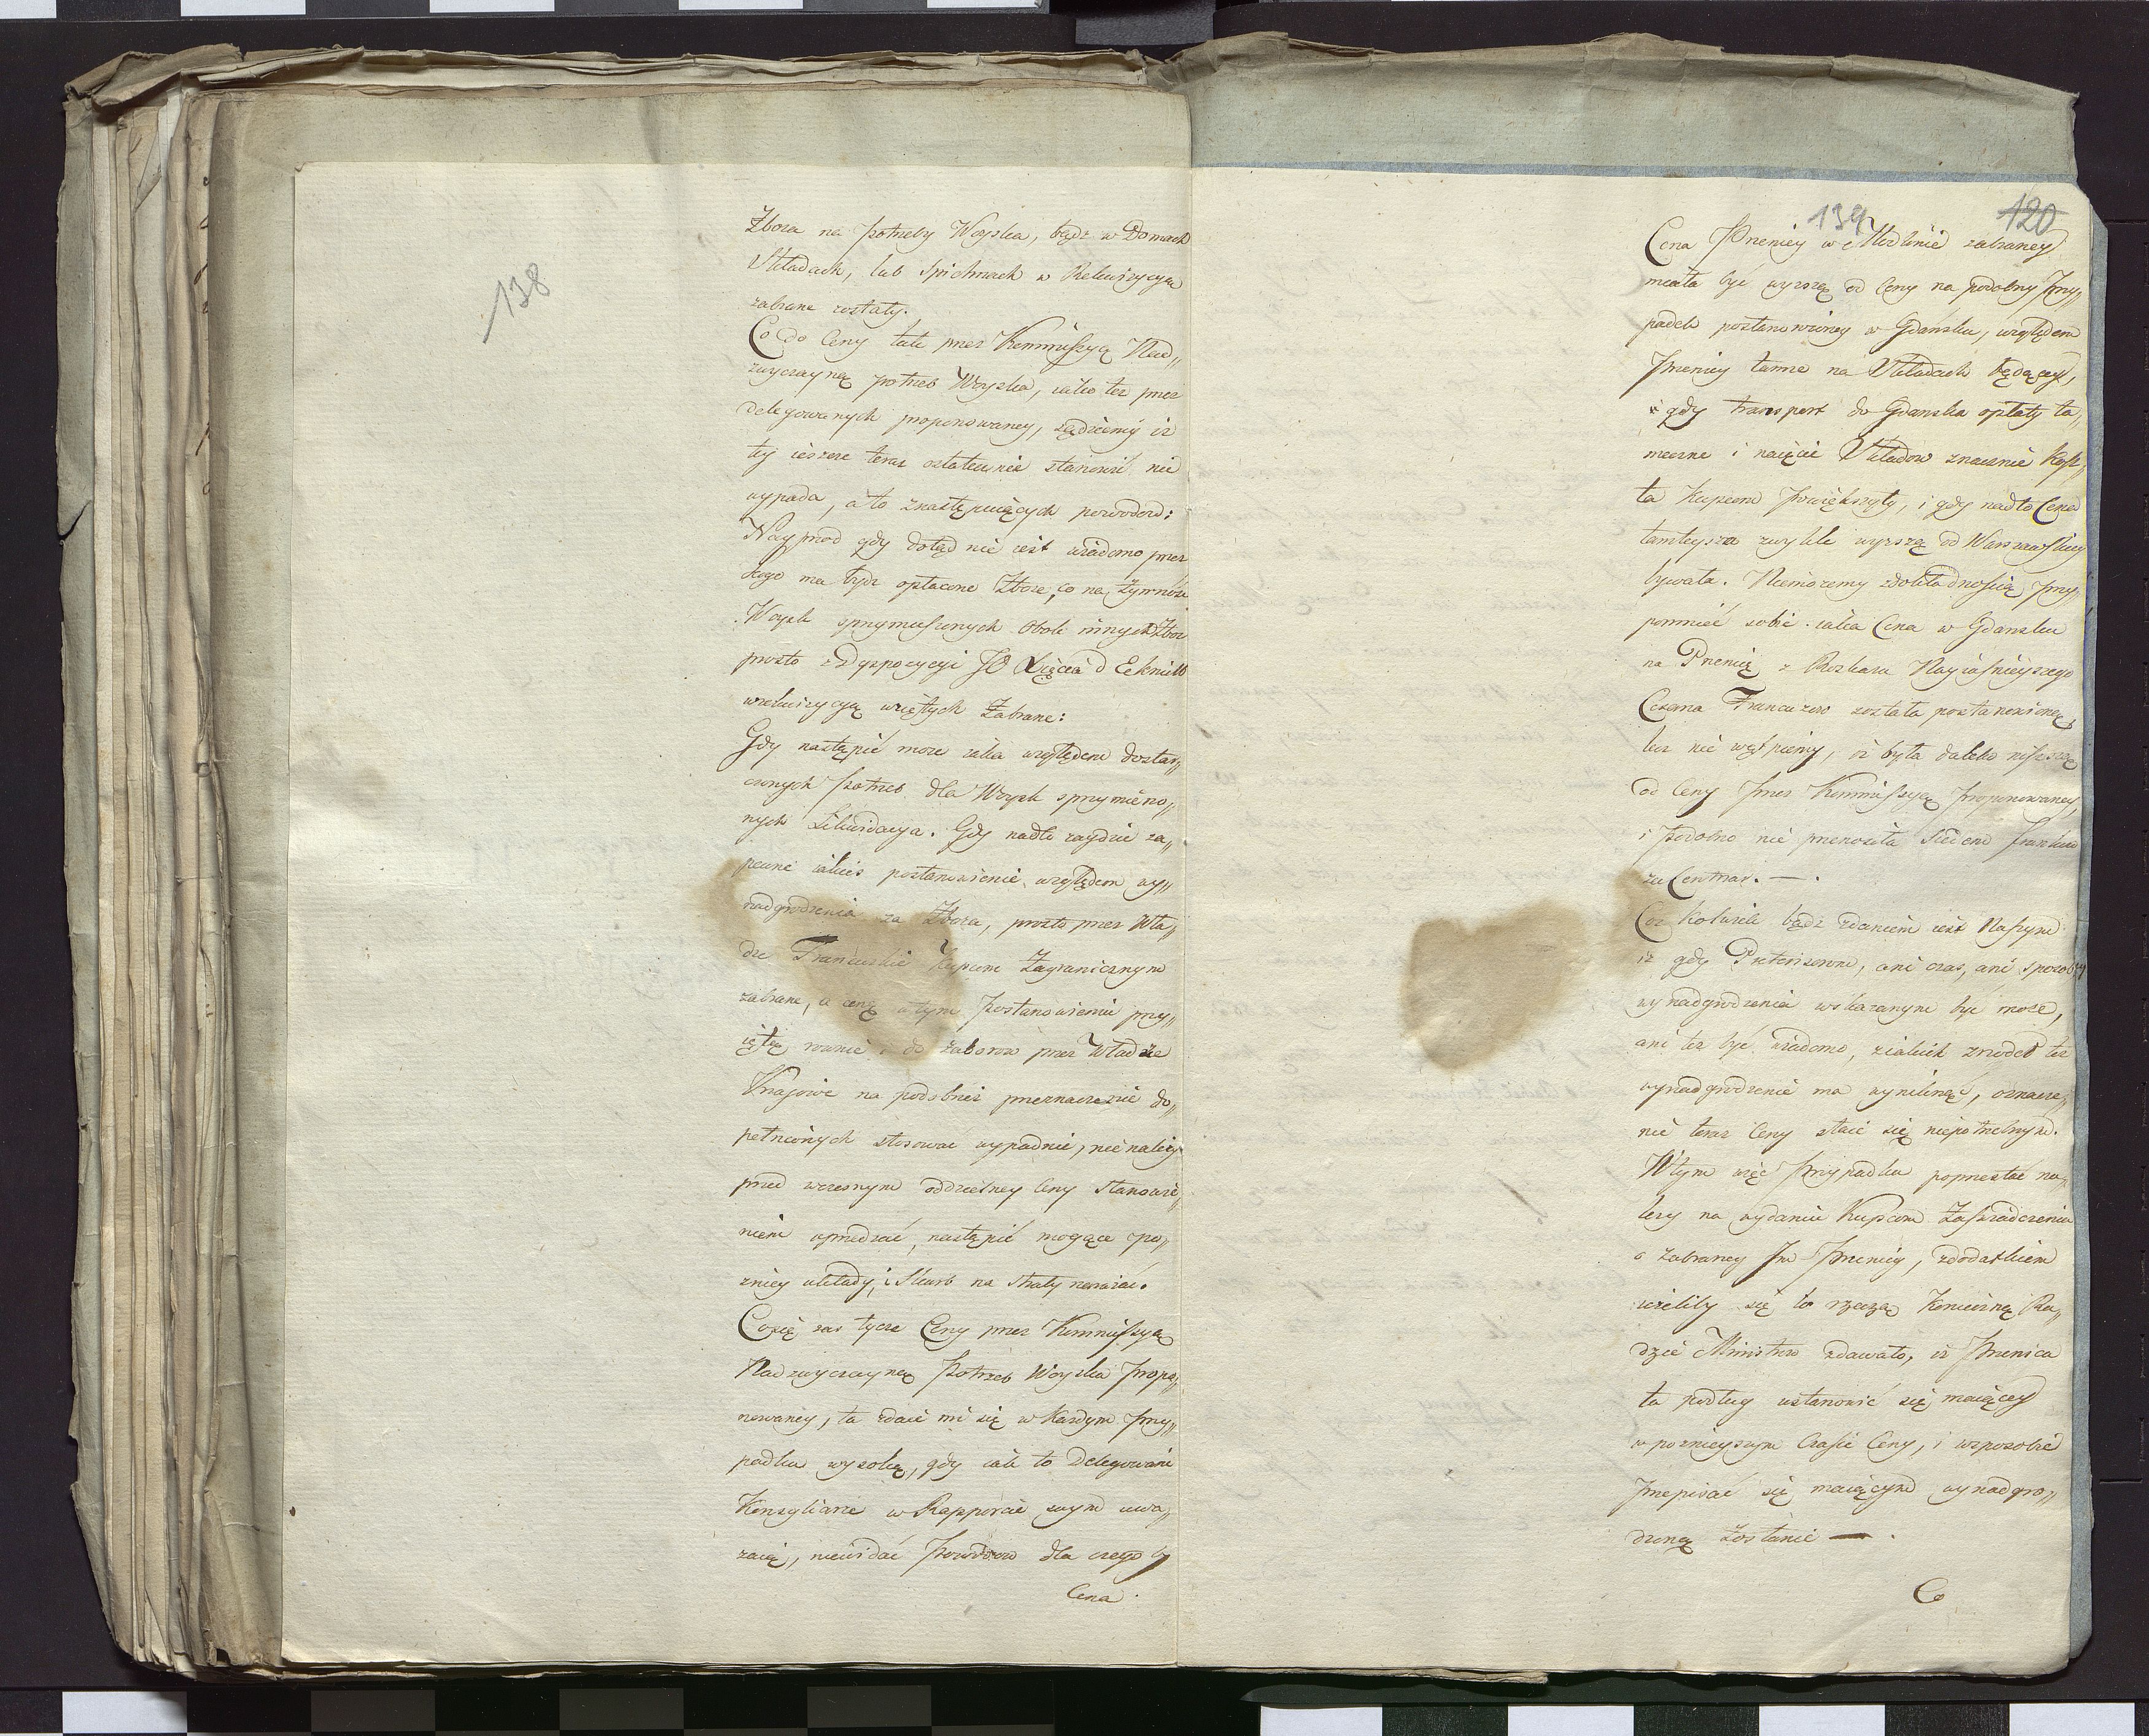 138
Zboża na potrzeby Woyska, bądź w Domach
Składach, lub Spichrzach w Rekwizycyą
zabrane zostały.
Co do Ceny tak przez Kommissyą Nad„
zwyczayną potrzeb Woyska, iako też przez
delegowanych proponowaney, sądziemy iż
tey ieszcze teraz ostatecznie stanowić nie
wypada, a to z następuiących powodow:
Nayprzod gdy dotąd nie iest wiadomo przez
kogo ma bydź opłacone Zboże, co na żywność
Woysk sprzymierzonych Obok innych Zboz
prosto z Dyspozycyi JO Xięcia d'Eckmühl
w rekwizycyą wziętych Zabrane:
Gdy nastąpić może iaka względem dostar„
czonych potrzeb dla Woysk sprzymierzo„
nych Likwidacya. Gdy nadto zaydzie za„
pewne iakieś postanowienie względem wy„
nadgrodzenia za Zboża, prosto przez Wła„
dze Francuskie Kupcom Zagranicznym
zabrane, a cenę w tym postanowieniu przy„
iętę rownie i do zaborow przez Władze
Kraiowe na podobnież przeznaczenie do„
pełnionych stosować wypadnie, nie należy
przed wczesnym oddzielney Ceny Stanowie„
niem uprzedzać, nastąpić mogące po„
zniey układy, i Skarb na straty narażać.
Co się zaś tycze Ceny przez Kommissyą
Nadzwyczayną Potrzeb Woyska propo„
nowaney, ta zdaie mi się w każdym przy„
padku wysoką, gdy iak to Delegowani
Konsyliarze w Rapporcie swym uwa„
żaią, niewidać powodow dla czego by
Cena
139
120
Cena Pszenicy w Modlinie zabraney
miała być wyższą od Ceny na podobny przy„
padek postanowioney w Gdańsku, względem
Pszenicy tamże na Składach będącey,
gdy transport do Gdanska opłaty ta„
moczne i naięcie Składow znacznie Kosz„
ta Kupcom powiększyły, i gdy nadto Cena
tamteysza zwykle wyższą od Warszawskiey
bywała. Niemożemy z dokładnością przy„
pomnieć sobie iaka Cena w Gdansku
na Pszenicę z Rozkazu Nayiaśnieyszego
Cesarza Francuzow została postanowioną,
lecz nie wątpiemy, iż była daleko niższą
od Ceny przez Kommissyą proponowaney,
i podobno nie przenosiła Siedem frankow
za Centnar. — .
Coż kolwiek bądź zdaniem iest Naszym
iż gdy Pretensorom, ani czas, ani sposob
wynadgrodzenia wskazanym być może,
ani też być wiadomo, z iakich zrzodeł też
wynadgrodzenie ma wyniknąć, oznacze„
nie teraz Ceny staie się niepotrzebnym.
W tym więc przypadku poprzestać na„
leży na wydaniu Kupcom Zaświadczenia
o zabraney Im Pszenicy, z dodatkiem
ieżeliby się to rzeczą konieczną Ra„
dzie Ministrow zdawało, iż Pszenica
ta podług ustanowić się maiącey
w poznieyszym Czasie Ceny, i w sposobie
przepisać się maiącym wynadgro„
dzoną zostanie — .
Co